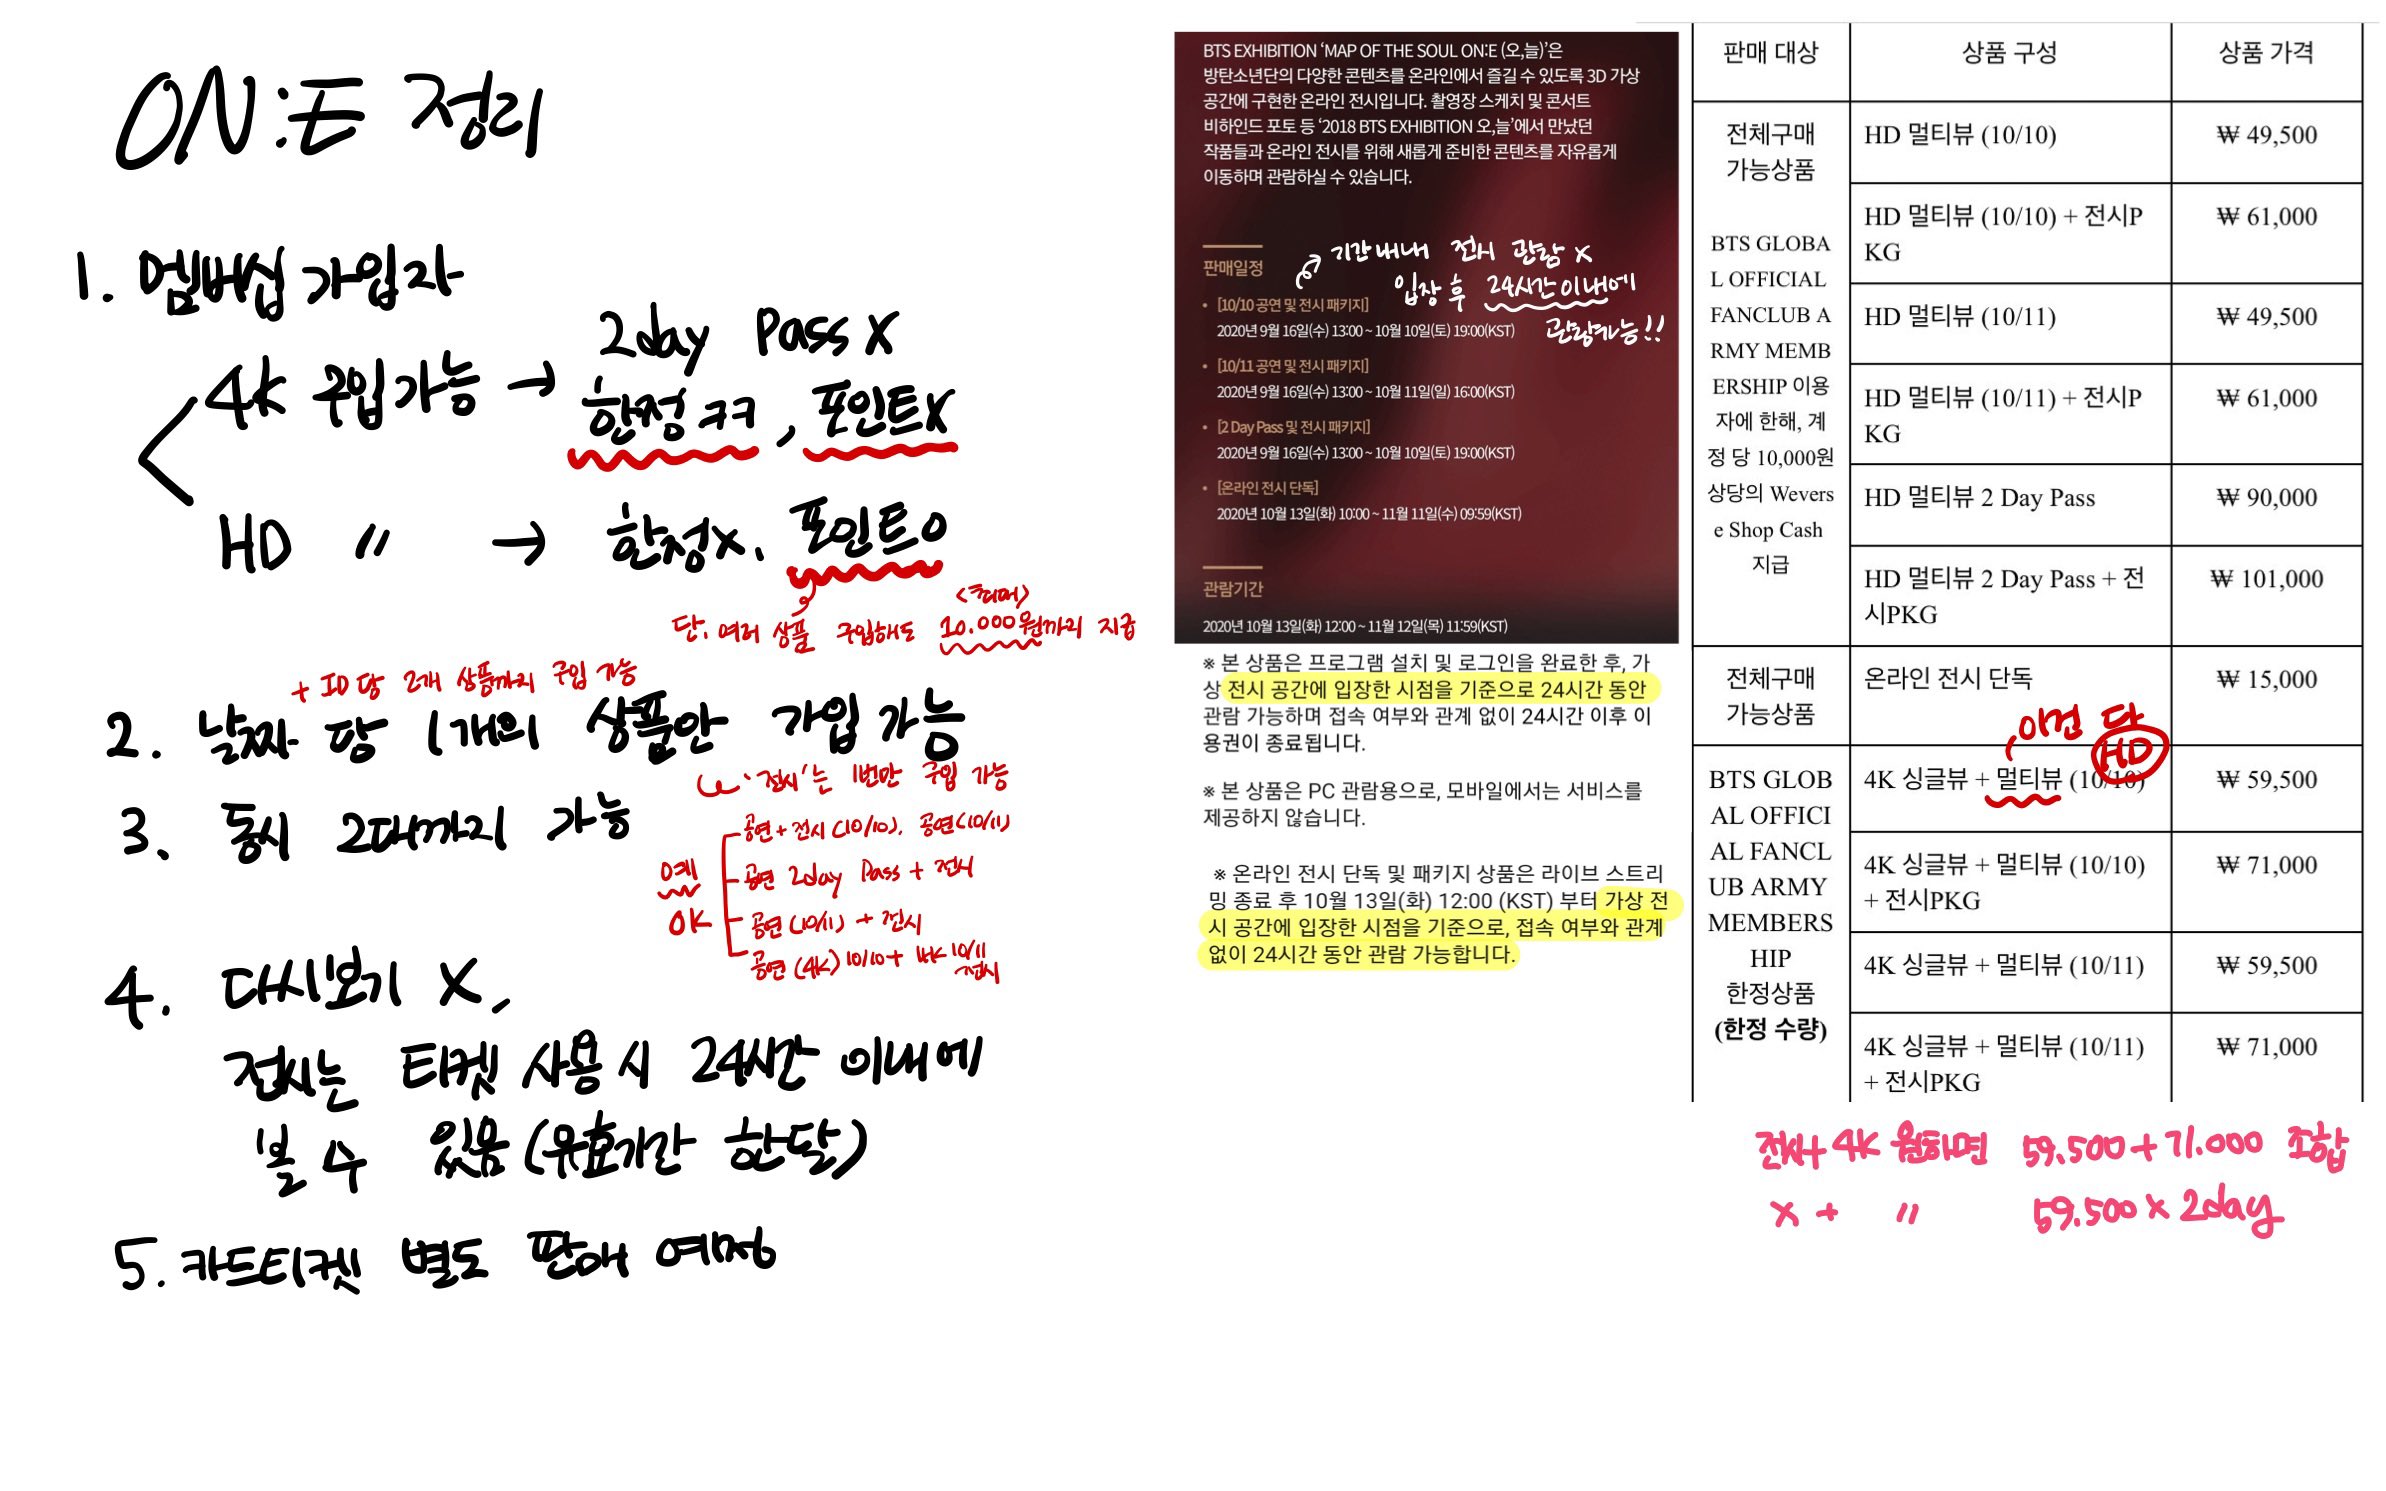 ON:E 정리
1. 멤버십 가입자
4K 구입가능 → 2day Pass X
한정 ㅋㅋ, 포인트X
HD 〃 → 한정X, 포인트O
<최대>
단, 여러 상품 구입해도 10,000원까지 지급
+ ID당 2개 상품까지 구입 가능
2. 날짜 당 1개의 상품만 가입 가능
'전시'는 1번만 구입 가능
3. 동시 2대까지 가능
예 OK
공연+전시(10/10), 공연(10/11)
공연 2day Pass + 전시
공연(10/11) + 전시
공연(4K) 10/10 + 4K 10/11
전시
4. 다시보기 X,
전시는 티켓 사용 시 24시간 이내에
볼 수 있음 (유효기간 한달)
5. 카드티켓 별도 판매 예정
BTS EXHIBITION ‘MAP OF THE SOUL ON:E (오,늘)’은
방탄소년단의 다양한 콘텐츠를 온라인에서 즐길 수 있도록 3D 가상
공간에 구현한 온라인 전시입니다. 촬영장 스케치 및 콘서트
비하인드 포토 등 ‘2018 BTS EXHIBITION 오,늘’에서 만났던
작품들과 온라인 전시를 위해 새롭게 준비한 콘텐츠를 자유롭게
이동하며 관람하실 수 있습니다.
판매일정
기간 내내 전시 관람 X
입장 후 24시간 이내에
관람가능!!
• [10/10 공연 및 전시 패키지]
2020년 9월 16일(수) 13:00 ~ 10월 10일(토) 19:00(KST)
• [10/11 공연 및 전시 패키지]
2020년 9월 16일(수) 13:00 ~ 10월 11일(일) 16:00(KST)
• [2 Day Pass 및 전시 패키지]
2020년 9월 16일(수) 13:00 ~ 10월 10일(토) 19:00(KST)
• [온라인 전시 단독]
2020년 10월 13일(화) 10:00 ~ 11월 11일(수) 09:59(KST)
관람기간
2020년 10월 13일(화) 12:00 ~ 11월 12일(목) 11:59(KST)
※ 본 상품은 프로그램 설치 및 로그인을 완료한 후, 가
상 전시 공간에 입장한 시점을 기준으로 24시간 동안
관람 가능하며 접속 여부와 관계 없이 24시간 이후 이
용권이 종료됩니다.
※ 본 상품은 PC 관람용으로, 모바일에서는 서비스를
제공하지 않습니다.
※ 온라인 전시 단독 및 패키지 상품은 라이브 스트리
밍 종료 후 10월 13일(화) 12:00 (KST) 부터 가상 전
시 공간에 입장한 시점을 기준으로, 접속 여부와 관계
없이 24시간 동안 관람 가능합니다.
판매 대상 상품 구성 상품 가격
전체구매
가능상품
BTS GLOBA
L OFFICIAL
FANCLUB A
RMY MEMB
ERSHIP 이용
자에 한해, 계
정 당 10,000원
상당의 Wevers
e Shop Cash
지급
HD 멀티뷰 (10/10) ₩ 49,500
HD 멀티뷰 (10/10) + 전시P
KG ₩ 61,000
HD 멀티뷰 (10/11) ₩ 49,500
HD 멀티뷰 (10/11) + 전시P
KG ₩ 61,000
HD 멀티뷰 2 Day Pass ₩ 90,000
HD 멀티뷰 2 Day Pass + 전
시PKG ₩ 101,000
전체구매
가능상품
온라인 전시 단독 ₩ 15,000
이건 다
HD
BTS GLOB
AL OFFICI
AL FANCL
UB ARMY
MEMBERS
HIP
한정상품
(한정 수량)
4K 싱글뷰 + 멀티뷰 (10/10) ₩ 59,500
4K 싱글뷰 + 멀티뷰 (10/10)
+ 전시PKG ₩ 71,000
4K 싱글뷰 + 멀티뷰 (10/11) ₩ 59,500
4K 싱글뷰 + 멀티뷰 (10/11)
+ 전시PKG ₩ 71,000
전시+ 4K 원하면 59,500+71,000 조합
X + 〃 59,500 x 2day